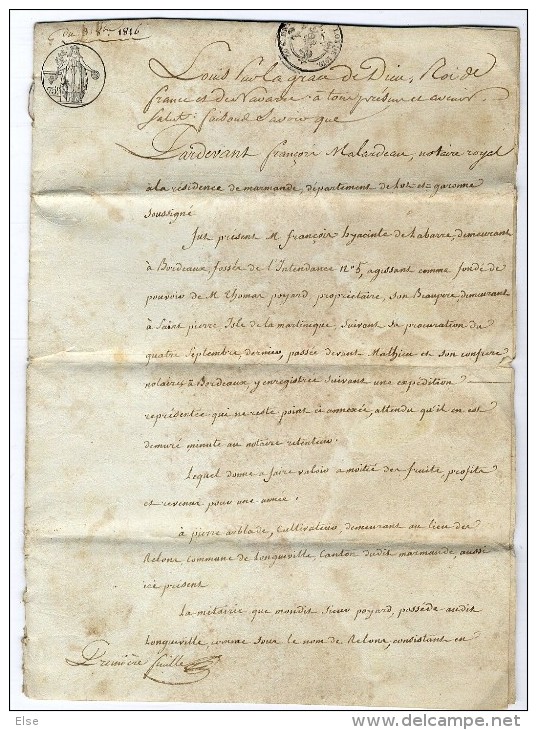 du 1816
Louis par la grace de Dieu, Roi de
france et de Navarre : à tous présens et avenir
Salut : faisons Savoir que
Pardevant françois Malardeau, notaire royal
à la résidence de marmande, département de lot-et-garonne
soussigné
fut present M. françois hyacinte delabarre, demeurant
à Bordeaux fossés de l'Intendance n° 5, agissant comme fondé de
pouvoir de M. Thomas poyard, propriétaire, son Beaupere, demeurant
à Saint pierre Isle de la martinique, suivant sa procuration du
quatre Septembre, dernier, passée devant Mathieu et son confrere
notaires à Bordeaux, y enregistrée suivant une expédition
représentée qui ne reste point ci annexée, attendu qu'il en est
demuré minute au notaire retenteur.
Lequel donne a faire valoir a moitié des fruits, profits
et revenus pour une année.
à pierre arblade, Cultivateur demeurant au lieu de
Relons commune de longueville, Canton dudit marmande, aussi
ici present
la métairie que mondit Sieur poyard, possède audit
longueville, connue sous le nom de Relons, consistant en
Première feuille
Else
www.delcampe.net